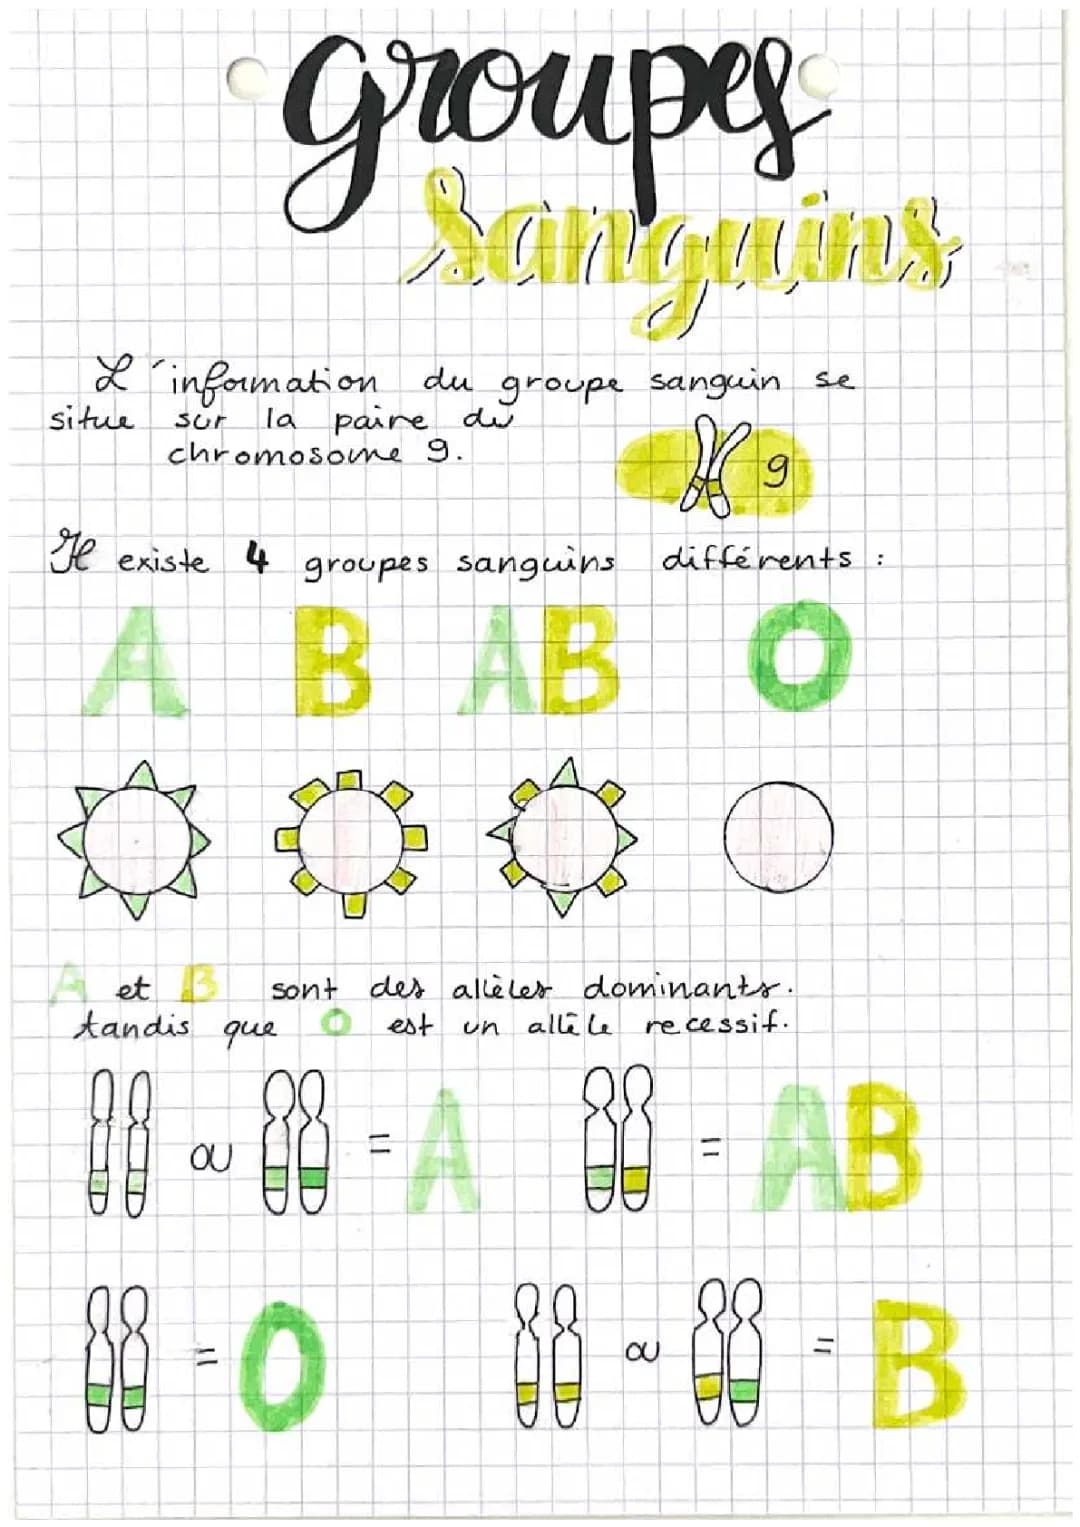 Groupes
Sanguins
L'information du groupe sanguin se
situe sur la paire du
chromosome 9.
9
Il existe 4 groupes sanguins différents :
A B AB O
A et B sont des allèles dominants.
tandis que O est un allèle recessif.
ou = A = AB
= O ou = B